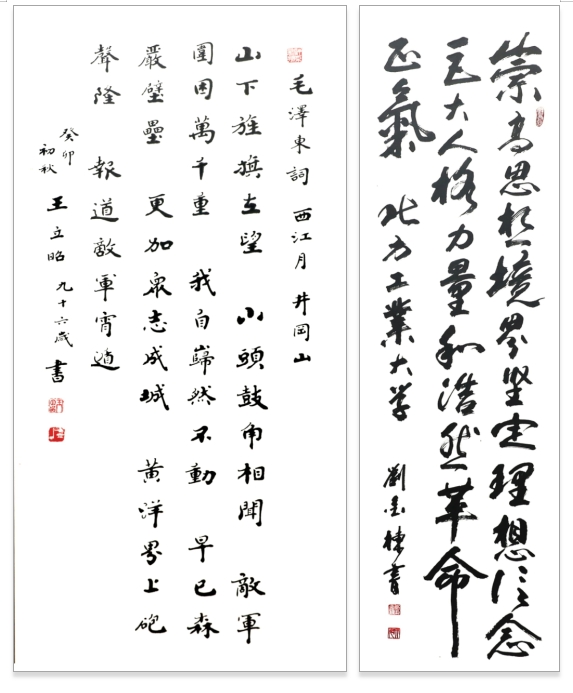 毛澤東詞 西江月 井岡山
山下旌旗在望 山頭鼓角相聞 敵軍
圍困萬千重 我自巋然不動 早已森
嚴壁壘 更加衆志成城 黃洋界上砲
聲隆 報道敵軍宵遁
癸卯
初秋
王立昭 九十六歲 書
崇高思想境界坚定理想信念
巨大人格力量和浩然革命
正氣 北方工業大学
劉 棟書